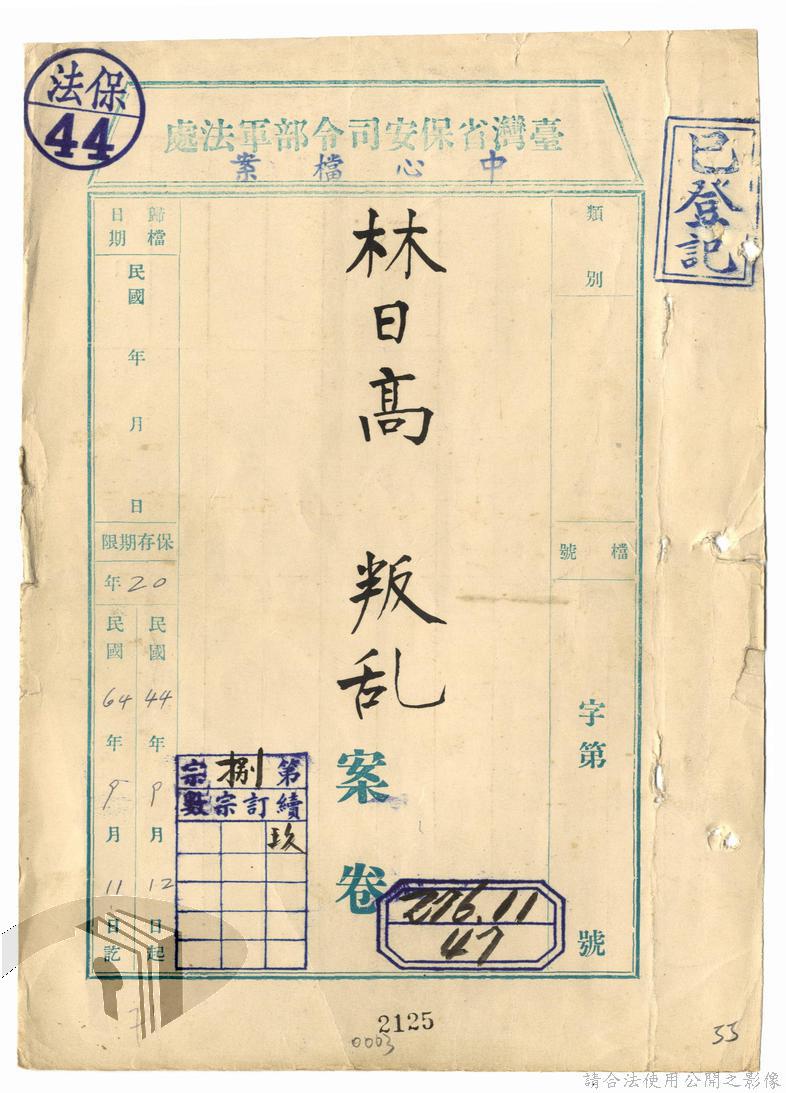 保法
44
臺灣省保安司令部軍法處
中心檔案
已登記
類別
檔號
字第
號
林日高 叛乱
案卷
歸檔日期
民國 年 月 日
保存期限
20年
民國44年9月12日起
民國64年9月11日訖
第捌宗數
續訂宗
玖
276.11
47
2125
0003
33
請合法使用公開之影像